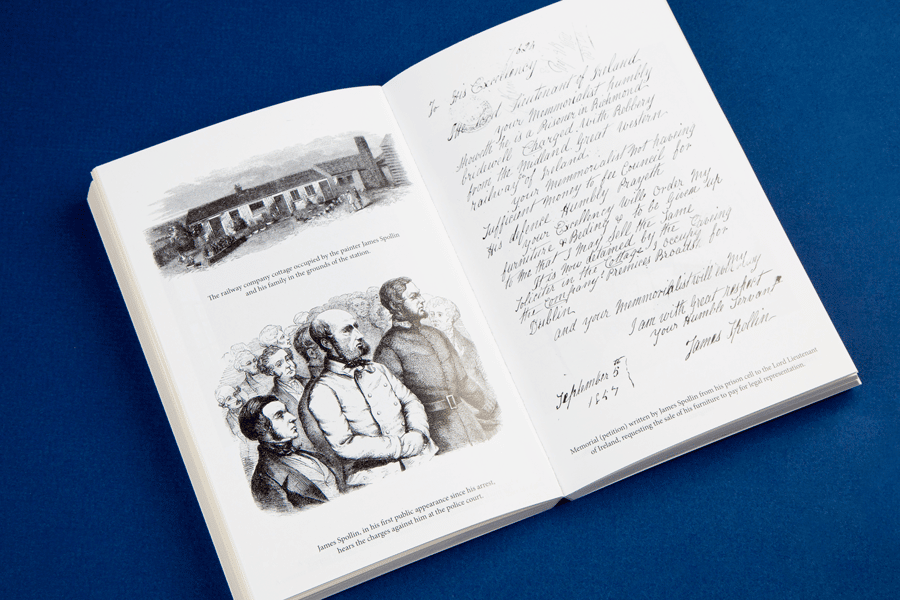 The railway company cottage occupied by the painter James Spollin
and his family in the grounds of the station.
James Spollin, in his first public appearance since his arrest,
hears the charges against him at the police court.
To His Excellency
The Lord Lieutenant of Ireland
your Memmorialist humbly
showeth He is a Prisoner in Richmond
bridewill Charged with Robbery
from the Midland Great Western
railway of Ireland.
your Memmorialist not having
sufficient money to fee Council for
His defence Humbly Prayeth
your Excellency will order My
furniture & Beding & to be given up
to me that I may sell the same
It is now detained by the
Soliciter in the Cottage I occupied
the Company Premices Broadth
Dublin
and your Memmorialist will
I am with Great respect
your Humble Servant
James Spollin
September 5th
1857
Memorial (petition) written by James Spollin from his prison cell to the Lord Lieutenant
of Ireland, requesting the sale of his furniture to pay for legal representation.